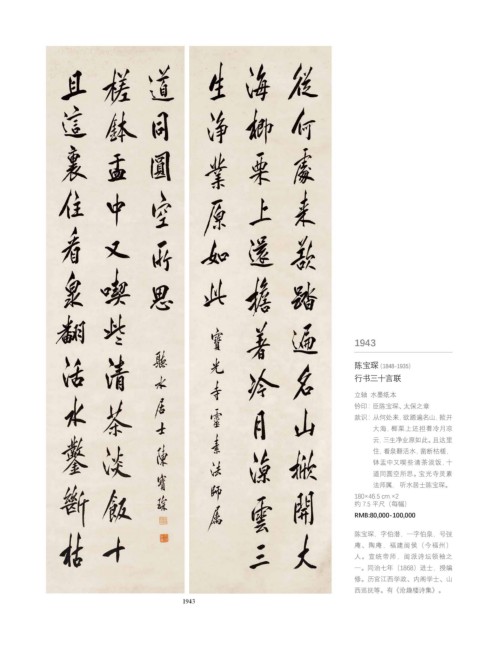 從何處来歎踏遍名山掀開大
海楖栗上還擔着冷月凉雲三
生净業原如此
寶光寺靈素法師属
且這裏住看泉翻活水鑿斷枯
槎鉢盂中又喫些清茶淡飯十
道同圓空所思
聽水居士陳寶琛
1943
1943
陈宝琛 (1848-1935)
行书三十言联
立轴 水墨纸本
钤印:臣陈宝琛、太保之章
款识:从何处来,欤踏遍名山,掀开
大海,楖栗上还担着冷月凉
云,三生净业原如此。且这里
住,看泉翻活水,凿断枯槎,
钵盂中又喫些清茶淡饭,十
道同圆空所思。宝光寺灵素
法师属,听水居士陈宝琛。
180×46.5 cm ×2
约 7.5 平尺(每幅)
RMB:80,000-100,000
陈宝琛,字伯潜,一字伯泉,号弢
庵、陶庵,福建闽侯(今福州)
人。宣统帝师,闽派诗坛领袖之
一。同治七年(1868)进士,授编
修。历官江西学政、内阁学士、山
西巡抚等。有《沧趣楼诗集》。